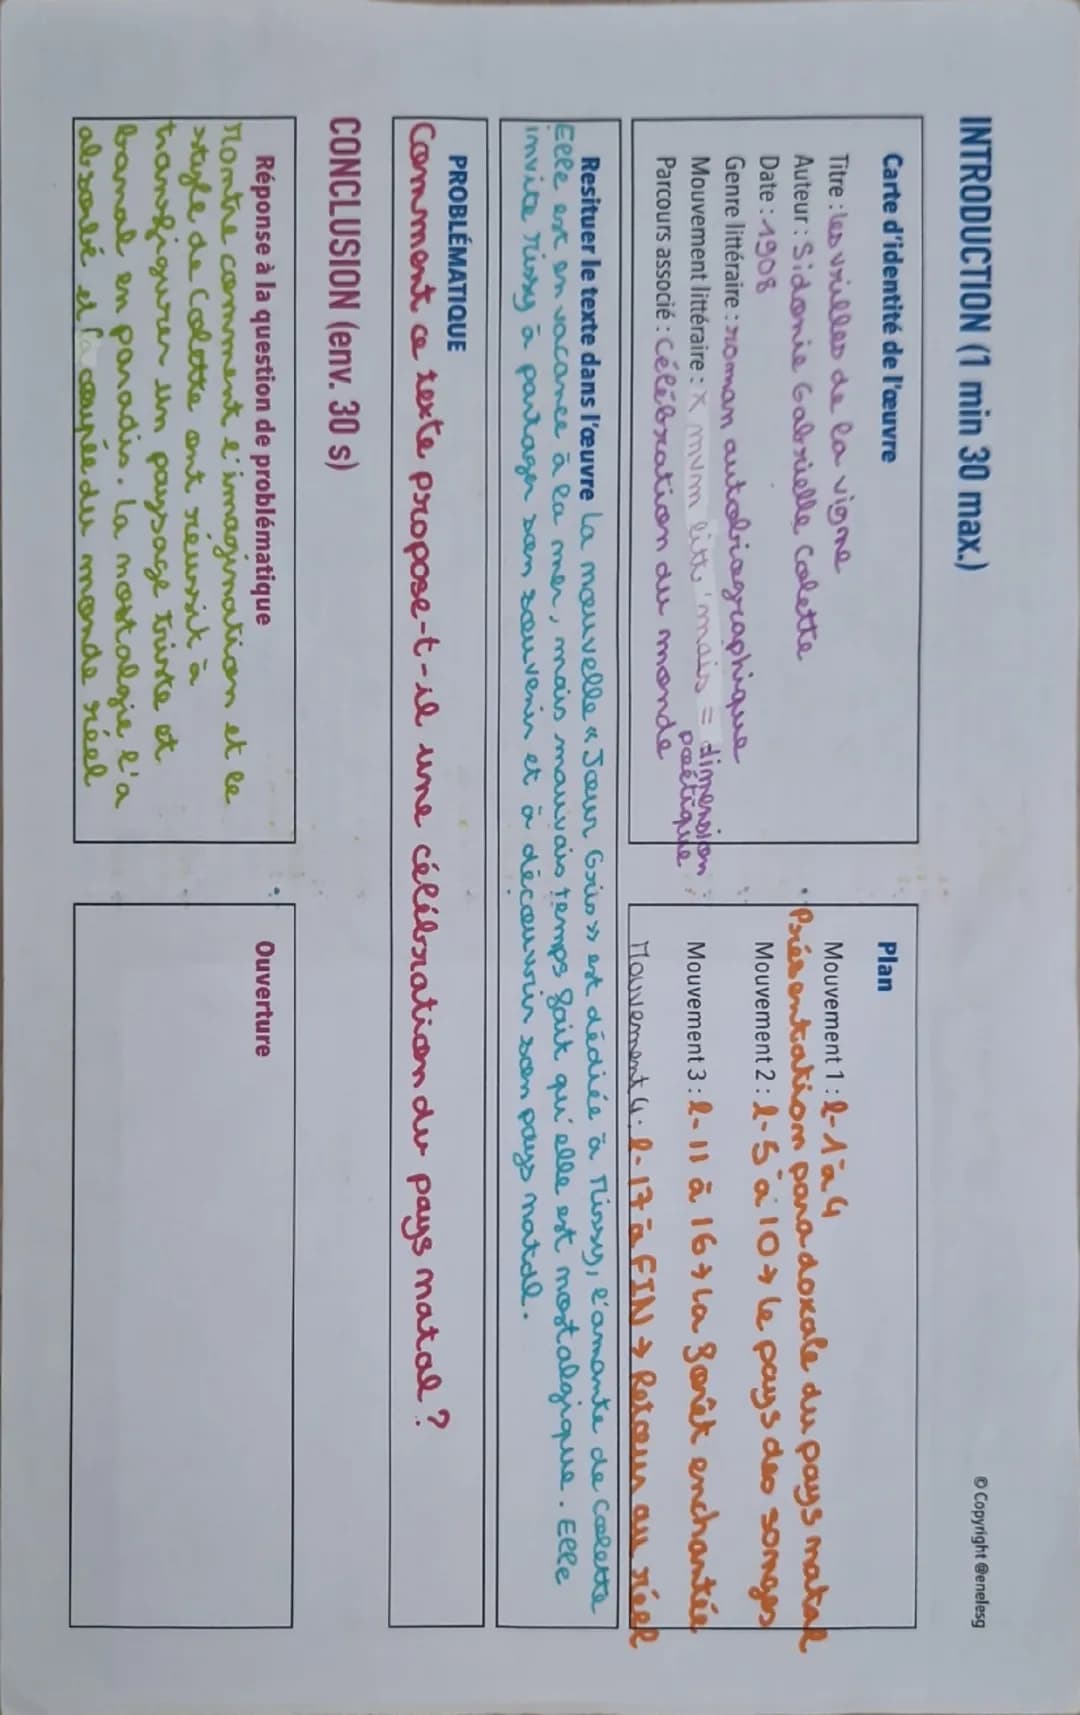 INTRODUCTION (1 min 30 max.)
© Copyright @enelesg
Carte d'identité de l'œuvre
Titre : les vrilles de la vigne
Auteur : Sidonie Gabrielle Colette
Date : 1908
Genre littéraire : roman autobiographique
Mouvement littéraire : X mvm litt. mais = dimension
poétique
Parcours associé : Célébration du monde
Plan
Mouvement 1 : l-1 à 4
• Présentation paradoxale du pays natal
Mouvement 2 : l-5 à 10 → le pays des songes
Mouvement 3 : l-11 à 16 → La forêt enchantée
Mouvement 4 : l-17 à FIN → Retour au réel
Resituer le texte dans l'œuvre La nouvelle « Jour Gris » est dédiée à Missy, l'amante de Colette
Elle est en vacance à la mer, mais mauvais temps fait qu'elle est nostalgique. Elle
invite Missy à partager son souvenir et à découvrir son pays natal.
PROBLÉMATIQUE
Comment ce texte propose-t-il une célébration du pays natal ?
CONCLUSION (env. 30 s)
Réponse à la question de problématique
Montre comment l'imagination et le
style de Colette ont réussit à
transfigurer un paysage triste et
banal en paradis. La nostalgie l'a
absorbé et l'a coupée du monde réel
Ouverture